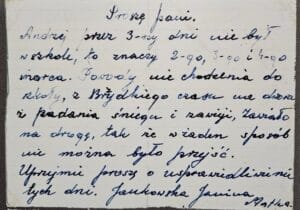 Proszę pani.
Andrzej przez 3-ny dni nie był
w szkole, to znaczy 2-go, 3-go i 4-go
marca. Powody nie chodzenia do
szkoły, z Brzydkiego czasu na dworze
z padania śniegu i zawiji, zawiało
na drogę, tak że w żaden sposób
nie można było przyjść.
Uprzejmie proszę o usprawiedliwinie
tych dni. Jankowska Janina
Matka.